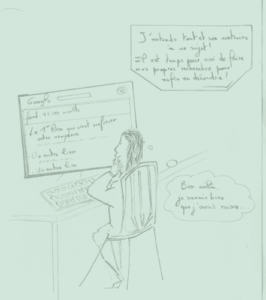 J'entends tout et son contraire
à ce sujet !
Il est temps pour moi de faire
mes propres recherches pour
enfin en démordre !
Google
Le 1er lien qui veut confirmer
votre croyance
Un autre lien
Un autre lien
Bon
je savais bien
que j'avais raison...